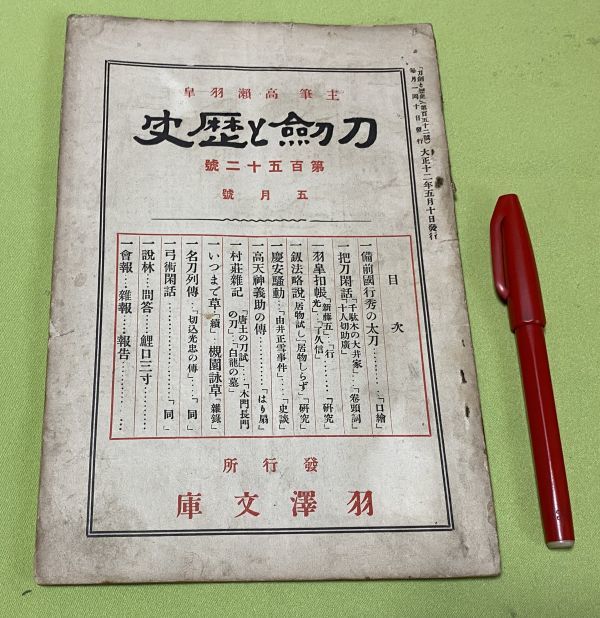 「刀劍と歷史」第百五十二號
每月一回十日發行
大正十二年五月十日發行
主筆高瀨羽皐
刀劍と歷史
第百五十二號
五月號
目次
一備前國行秀の太刀………「口繪」
一把刀閑話「千駄木の大井家」「十人切助廣」…「卷頭詞」
一羽皐扣帳「新藤五」「行光」…「了久信」……「硏究」
一鍛法略說「居物試し」「居物しらず」「硏究」
一慶安騷動…「由井正雪事件」…「史談」
一高天神義助の傳…………「はり扇」
一村莊雜記「唐土の刀試」…「木門長門の刀」…「白龍の墓」
一いつまで草「續」槻園詠草「雜錄」
一名刀列傳…「切込光忠の傳」…「同」
一弓術閑話………………「同」
一說林…問答…鯉口三寸………
一會報…雜報…報告…………
發行所
羽澤文庫